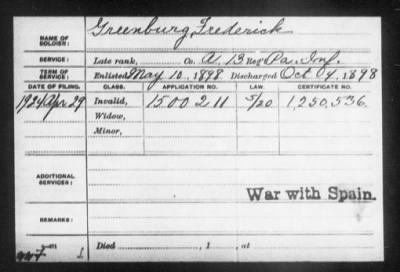 NAME OF SOLDIER: Greenburg, Frederick
SERVICE: Late rank, Co. A. 13 Reg't Pa. Inf.
TERM OF SERVICE: Enlisted May 10, 1898 Discharged Oct 4, 1898
DATE OF FILING. CLASS. APPLICATION NO. LAW. CERTIFICATE NO.
1924 Apr 29 Invalid, 1500211 5/20 1,250,536.
Widow,
Minor,
ADDITIONAL SERVICES:
War with Spain.
REMARKS:
Died , 1 , at